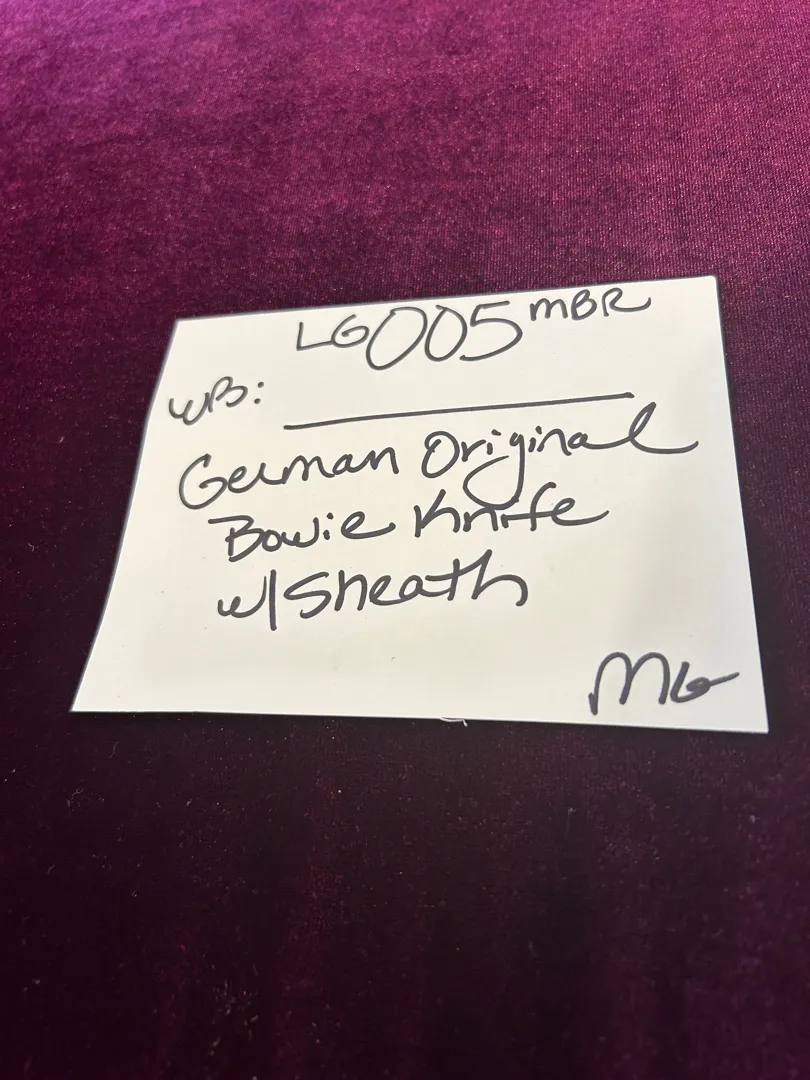 LG005 MBR
WB: ____________
German Original
Bowie Knife
w/Sheath
MG